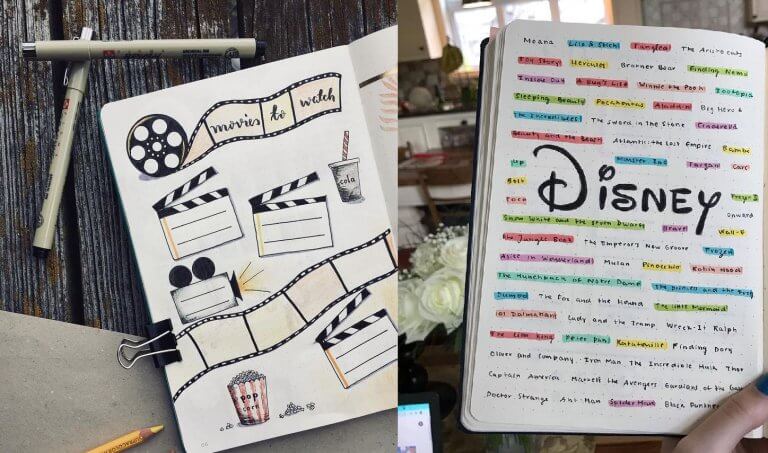 movies to watch
cola
pop
corn
Moana Lilo & Stich Tangled The Aristocats
Toy Story Hercules Brother Bear Finding Nemo
Inside Out A Bug's Life Winnie the Pooh Zootopia
Sleeping Beauty Pocahontas Aladdin Big Hero 6
The Incredibles The Sword in the Stone Cinderella
Beauty and the Beast Atlantis: the Lost Empire Bambi
Up Monster Inc Tarzan Cars
Bolt
Coco
Disney
Onward
Snow White and the Seven Dwarfs Brave Wall-E
the Jungle Book The Emperor's New Groove Frozen
Alice in Wonderland Mulan Pinocchio Robin Hood
The Hunchback of Notre Dame The Princess and the Frog
Dumbo The Fox and the Hound The Little Mermaid
101 Dalmatians Lady and the Tramp Wreck-It Ralph
The Lion King Peter Pan Ratatouille Finding Dory
Oliver and Company Iron Man The Incredible Hulk Thor
Captain America Marvel's the Avengers Guardians of the
Doctor Strange Ant-Man Spider Man Black Panther